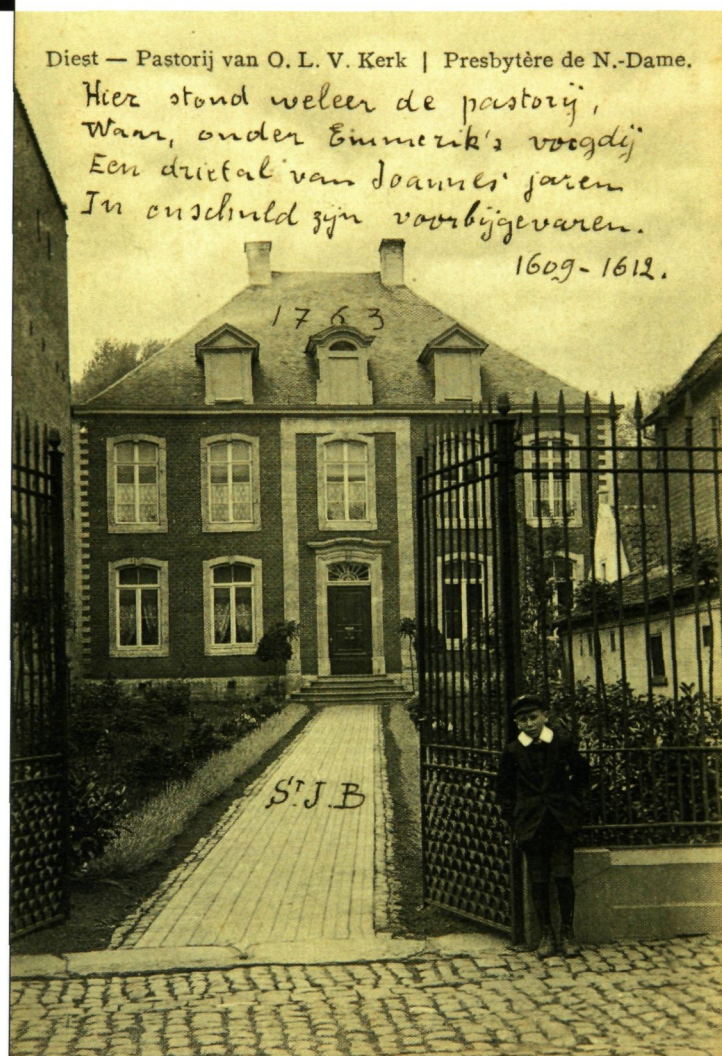 Diest — Pastorij van O. L. V. Kerk | Presbytère de N.-Dame.
Hier stond weleer de pastorij,
Waar, onder Emmerik's voogdij
Een drietal van Joannes' jaren
In onschuld zijn voorbijgevaren.
1609-1612.
1763
ST. J. B